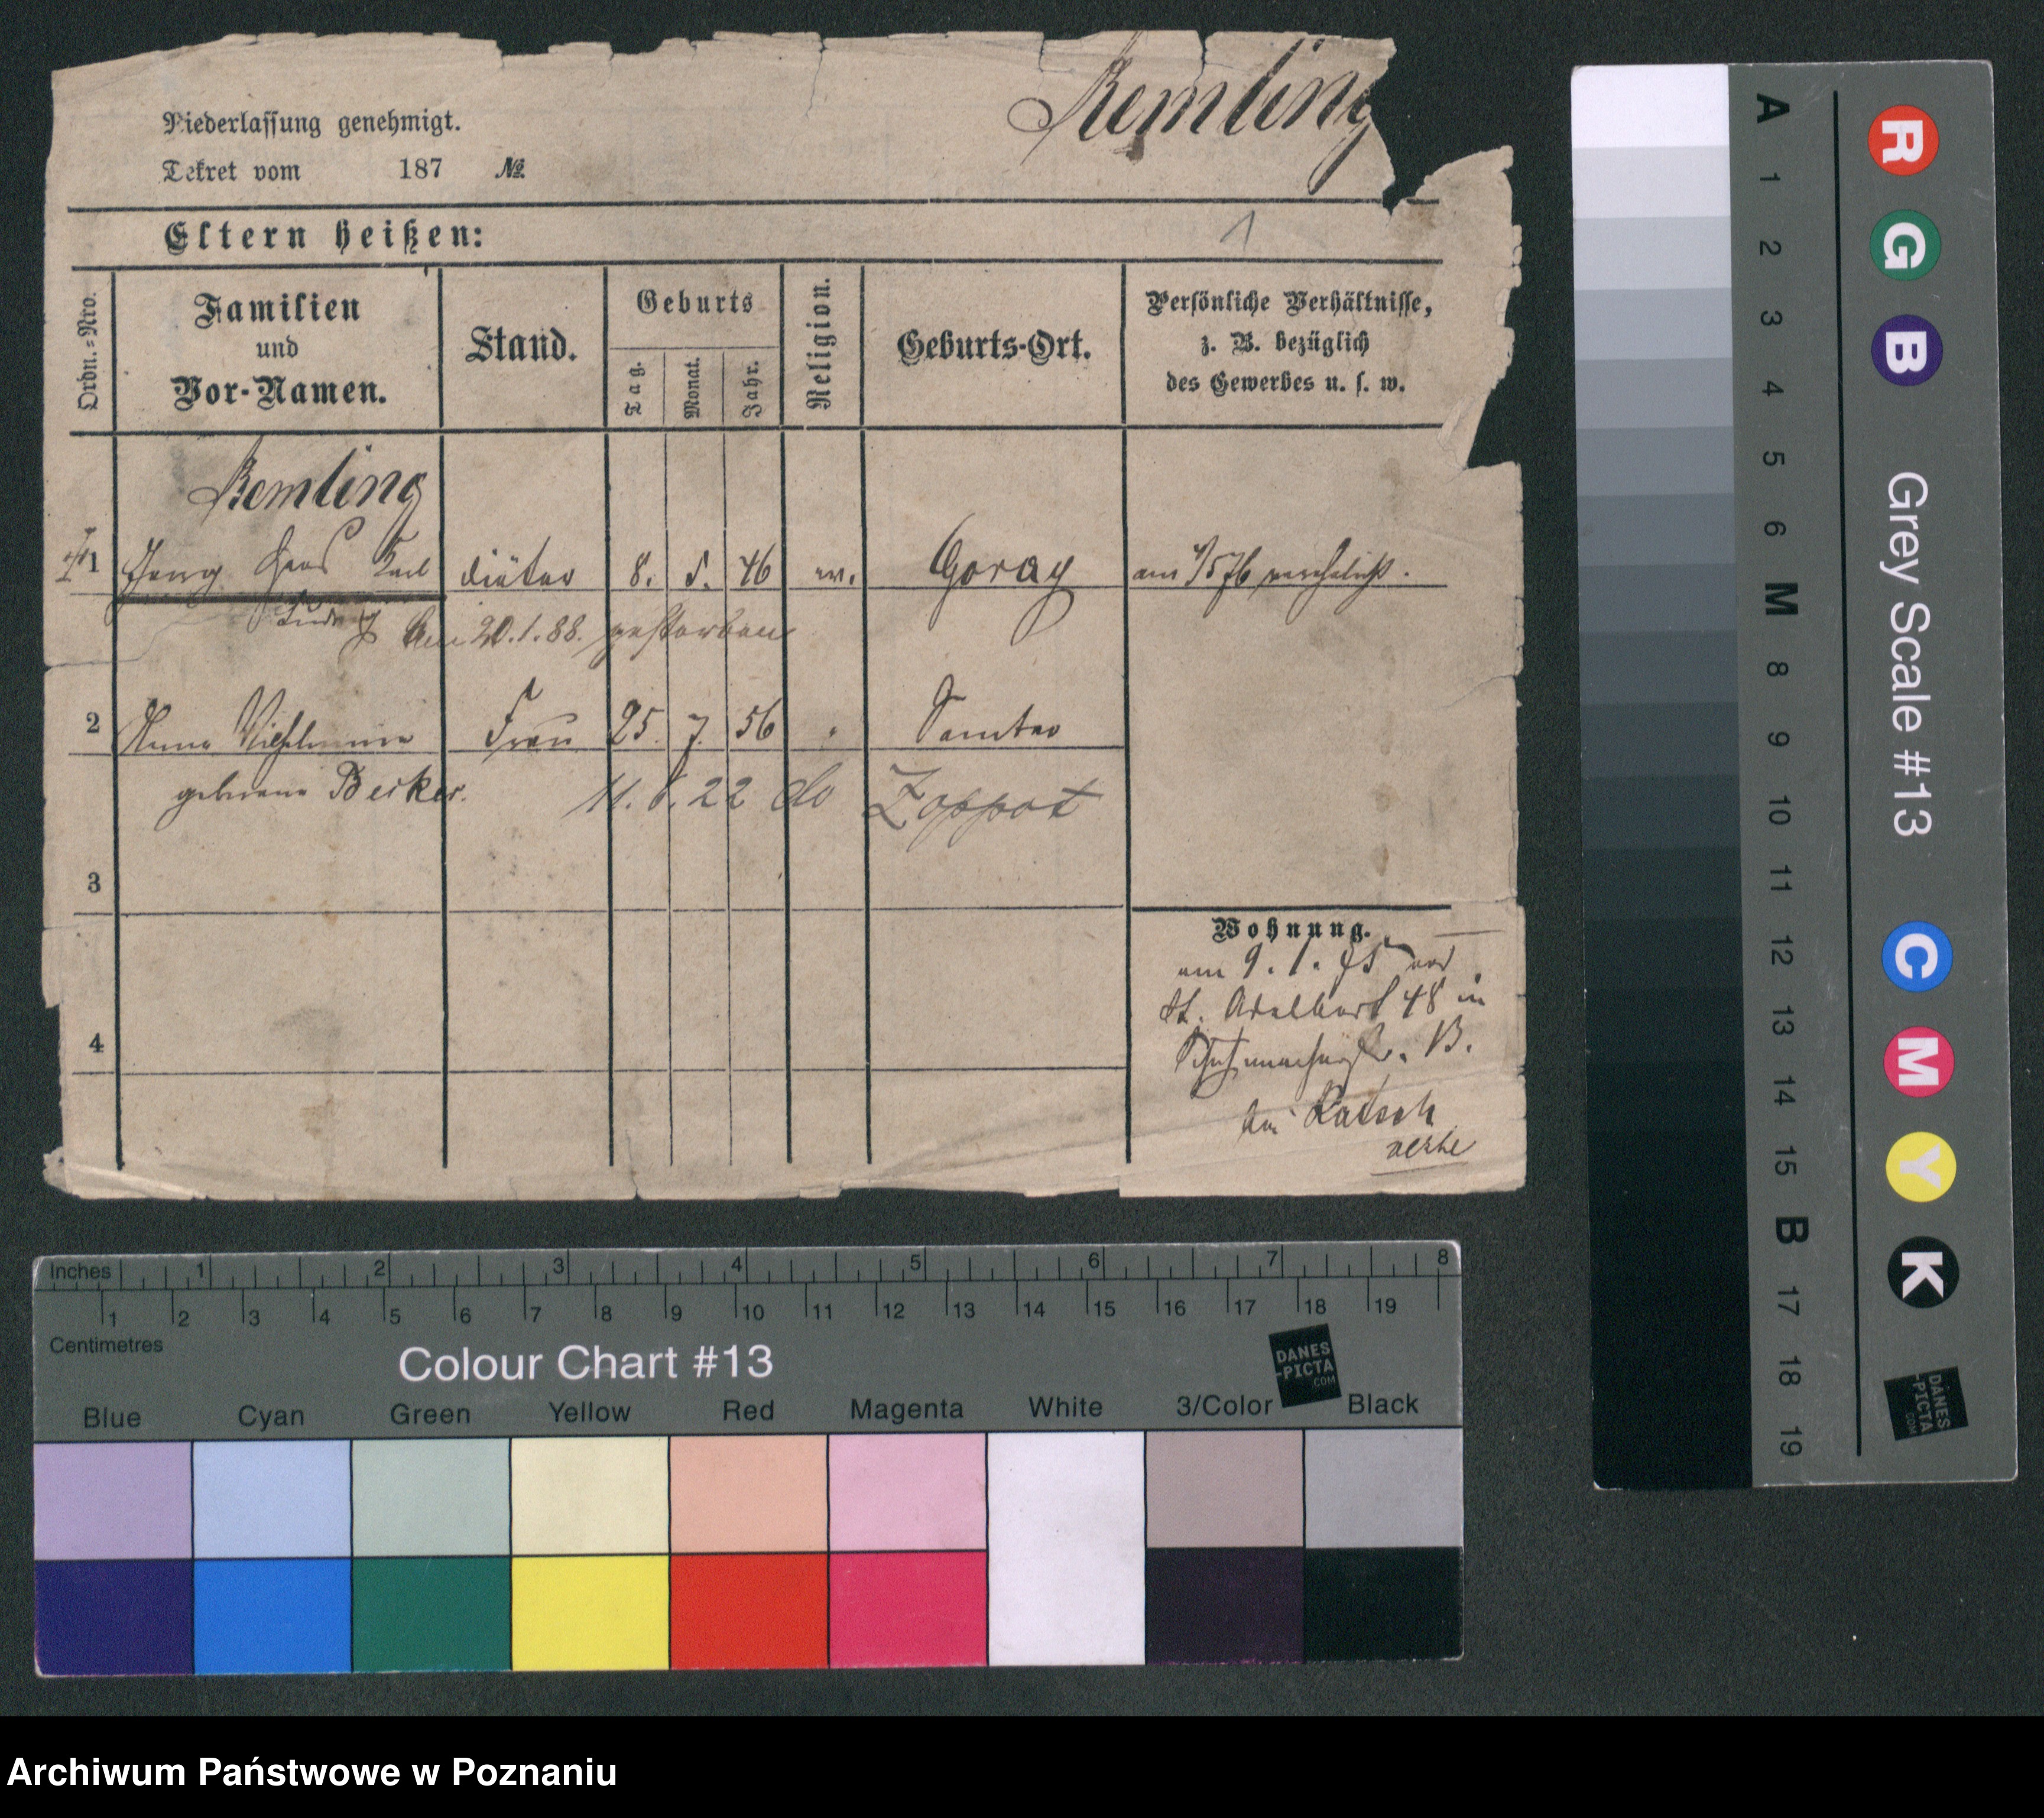 Remling
Niederlassung genehmigt.
Dekret vom 187 №
Eltern heißen:
1
Ordn.=Nro.
Familien
und
Vor-Namen.
Stand.
Geburts
Tag.
Monat.
Jahr.
Religion.
Geburts-Ort.
Persönliche Verhältnisse,
z. B. bezüglich
des Gewerbes u. s. w.
Remling
1 Georg Hans Carl diätar 8. 5. 46 ev. Goray am 1/5 76 verehelicht.
Ludwig am 20.1.88. gestorben
2 Anna Wilhelmine Frau 25. 7. 56 Samter
geborene Becker. 11. 6. 22 do Zoppot
3
4
Wohnung.
am 9. 1. 75 von
St. Adalbert 48 in
Schuhmacherstr. 13.
bei Katsch
Inches 1 2 3 4 5 6 7 8
1 2 3 4 5 6 7 8 9 10 11 12 13 14 15 16 17 18 19
Centimetres
Colour Chart #13
DANES
-PICTA
.COM
Blue Cyan Green Yellow Red Magenta White 3/Color Black
A 1 2 3 4 5 6 M 8 9 10 11 12 13 14 15 B 17 18 19
R G B Grey Scale #13 C M Y K
DANES
-PICTA
.COM
Archiwum Państwowe w Poznaniu